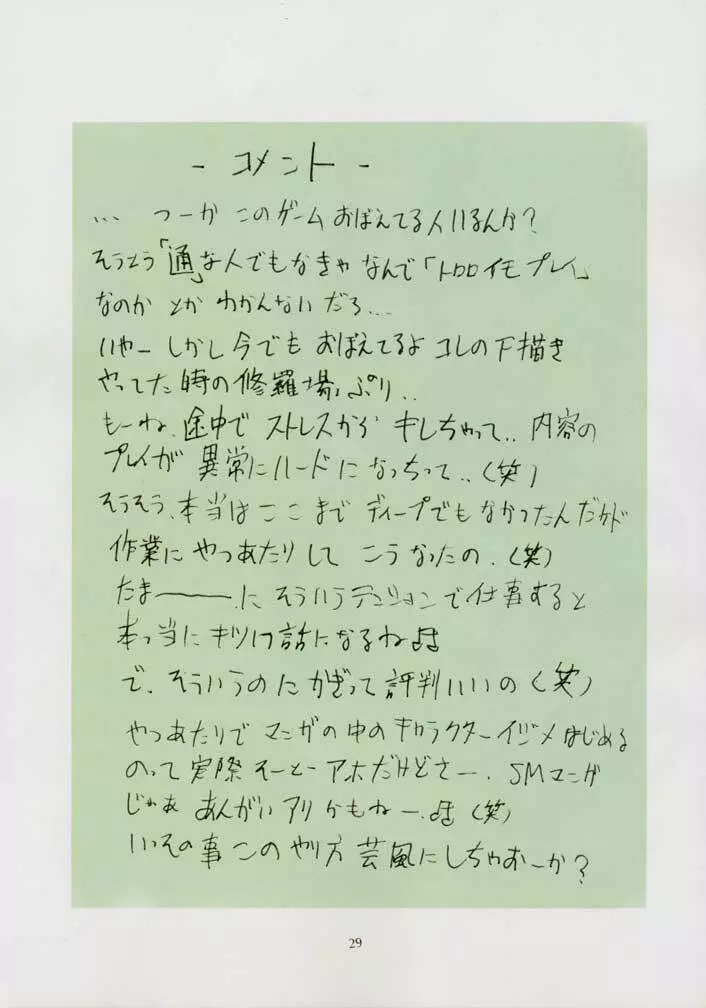 - コメント -
… つーか このゲームおぼえてる人いるんか?
そうとう「通」な人でもなきゃ なんで「トロロイモプレイ」
なのか とか わかんないだろ…
いやー しかし今でも おぼえてるよ コレの下描き
やってた時の修羅場っぷり..
もーね、途中で ストレスから キレちゃって.. 内容の
プレイが 異常にハードになっちって..(笑)
そうそう、本当はここまで ディープでもなかったんだけど
作業に やつあたりして こうなったの.(笑)
たまーーーにそういうテンションで仕事すると
本っ当にキツい話になるね♪
で、そういうのにかぎって評判いいの(笑)
やつあたりで マンガの中のキャラクターイジメはじめる
のって実際そーとーアホだけどさー、SMマンガ
じゃあ あんがいアリかもねー.♪(笑)
いっその事 このやり方 芸風にしちゃおーか?
29